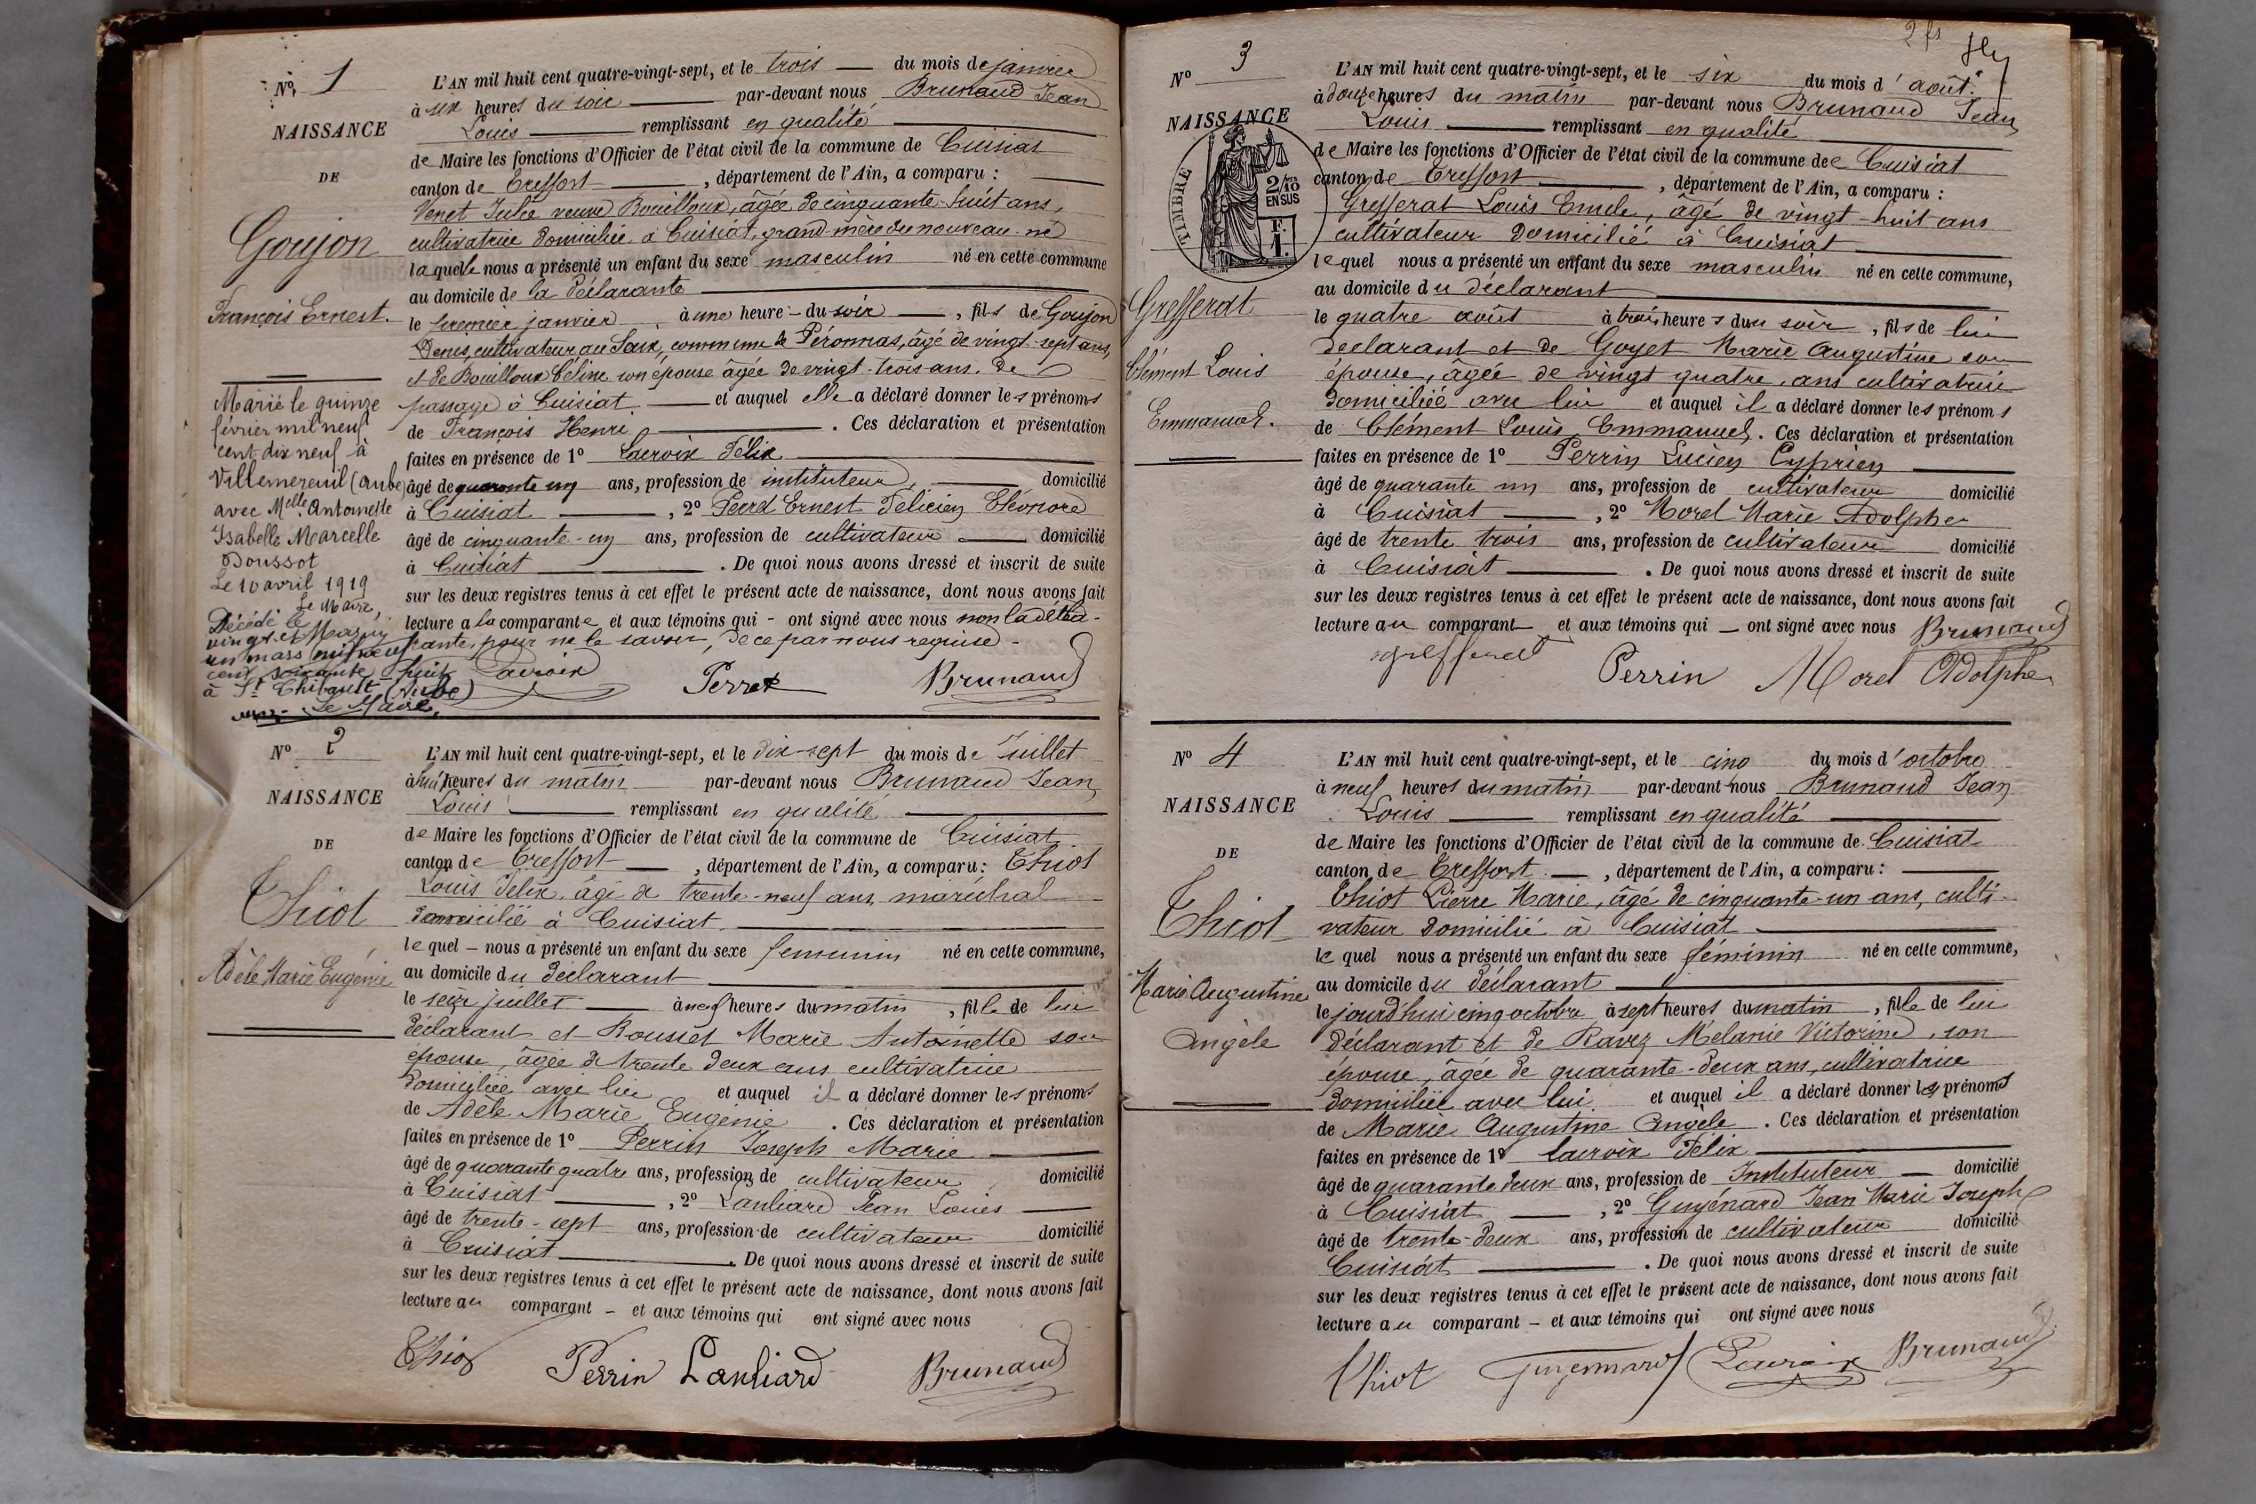 Nº 1
NAISSANCE
DE
Goujon
François Ernest.
Marié le quinze
février mil neuf
cent dix neuf à
Villemereuil (Aube)
avec Melle Antoinette
Isabelle Marcelle
Doussot
Le 10 avril 1919
Le Maire,
Décédé le
vingt et
un mars mil neuf
cent soixante huit
à St Thibault (Aube)
Le Maire,
L'AN mil huit cent quatre-vingt-sept, et le trois du mois de janvier
à six heures du soir par-devant nous Brunaud Jean
Louis remplissant en qualité
de Maire les fonctions d'Officier de l'état civil de la commune de Cuisiat
canton de Treffort, département de l'Ain, a comparu :
Venet Julie veuve Bouilloux, âgée de cinquante-huit ans,
cultivatrice domiciliée à Cuisiat, grand-mère du nouveau-né
laquelle nous a présenté un enfant du sexe masculin né en cette commune
au domicile de la déclarante
le premier janvier, à une heure du soir, fils de Goujon
Denis, cultivateur au Saix, commune de Péronnas, âgé de vingt-sept ans,
et de Bouilloux Céline son épouse âgée de vingt-trois ans, de
passage à Cuisiat, et auquel elle a déclaré donner les prénoms
de François Henri. Ces déclaration et présentation
faites en présence de 1º Lacroix Félix
âgé de quarante un ans, profession de instituteur, domicilié
à Cuisiat, 2º Perret Ernest Félicien Eléonore
âgé de cinquante-un ans, profession de cultivateur domicilié
à Cuisiat. De quoi nous avons dressé et inscrit de suite
sur les deux registres tenus à cet effet le présent acte de naissance, dont nous avons fait
lecture a la comparante et aux témoins qui - ont signé avec nous non la décla-
rante, pour ne le savoir, de ce par nous requise -
Lacroix Perret Brunaud
Nº 2
NAISSANCE
DE
Thiot
Adèle Marie Eugénie
L'AN mil huit cent quatre-vingt-sept, et le dix-sept du mois de Juillet
à huit heures du matin par-devant nous Brunaud Jean
Louis remplissant en qualité
de Maire les fonctions d'Officier de l'état civil de la commune de Cuisiat
canton de Treffort, département de l'Ain, a comparu : Thiot
Louis Félix, âgé de trente-neuf ans, maréchal
domicilié à Cuisiat
lequel - nous a présenté un enfant du sexe féminin né en cette commune,
au domicile du déclarant
le seize juillet à neuf heures du matin, fille de lui
déclarant et Rousset Marie Antoinette son
épouse, âgée de trente deux ans, cultivatrice
domiciliée avec lui et auquel il a déclaré donner les prénoms
de Adèle Marie Eugénie. Ces déclaration et présentation
faites en présence de 1º Perrin Joseph Marie
âgé de quarante quatre ans, profession de cultivateur domicilié
à Cuisiat, 2º Lanliard Jean Louis
âgé de trente-sept ans, profession de cultivateur domicilié
à Cuisiat. De quoi nous avons dressé et inscrit de suite
sur les deux registres tenus à cet effet le présent acte de naissance, dont nous avons fait
lecture au comparant - et aux témoins qui ont signé avec nous
Thiot Perrin Lanliard Brunaud
2 fs
Nº 3
NAISSANCE
TIMBRE
2/10
EN SUS
F.
1.
Grefferat
Clément Louis
Emmanuel.
L'AN mil huit cent quatre-vingt-sept, et le six du mois d'août
à douze heures du matin par-devant nous Brunaud Jean
Louis remplissant en qualité
de Maire les fonctions d'Officier de l'état civil de la commune de Cuisiat
canton de Treffort, département de l'Ain, a comparu :
Grefferat Louis Emile, âgé de vingt-huit ans
cultivateur domicilié à Cuisiat
lequel nous a présenté un enfant du sexe masculin né en cette commune,
au domicile du déclarant
le quatre août à trois heures du soir, fils de lui
déclarant et de Goyet Marie Augustine son
épouse, âgée de vingt quatre ans cultivatrice
domiciliée avec lui et auquel il a déclaré donner les prénoms
de Clément Louis Emmanuel. Ces déclaration et présentation
faites en présence de 1º Perrin Lucien Cyprien
âgé de quarante un ans, profession de cultivateur domicilié
à Cuisiat, 2º Morel Marie Adolphe
âgé de trente trois ans, profession de cultivateur domicilié
à Cuisiat. De quoi nous avons dressé et inscrit de suite
sur les deux registres tenus à cet effet le présent acte de naissance, dont nous avons fait
lecture au comparant et aux témoins qui - ont signé avec nous Brunaud
Grefferat Perrin Morel Adolphe
Nº 4
NAISSANCE
DE
Thiot
Marie Augustine
Angèle
L'AN mil huit cent quatre-vingt-sept, et le cinq du mois d'octobre
à neuf heures du matin par-devant nous Brunaud Jean
Louis remplissant en qualité
de Maire les fonctions d'Officier de l'état civil de la commune de Cuisiat
canton de Treffort, département de l'Ain, a comparu :
Thiot Pierre Marie, âgé de cinquante-un ans, culti-
vateur domicilié à Cuisiat
le quel nous a présenté un enfant du sexe féminin né en cette commune,
au domicile du déclarant
le jourd'hui cinq octobre à sept heures du matin, fille de lui
déclarant et de Ravez Mélanie Victorine, son
épouse, âgée de quarante-deux ans, cultivatrice
domiciliée avec lui. et auquel il a déclaré donner les prénoms
de Marie Augustine Angèle. Ces déclaration et présentation
faites en présence de 1º Lacroix Félix
âgé de quarante deux ans, profession de Instituteur domicilié
à Cuisiat, 2º Guyénard Jean Marie Joseph
âgé de trente-deux ans, profession de cultivateur domicilié
Cuisiat. De quoi nous avons dressé et inscrit de suite
sur les deux registres tenus à cet effet le présent acte de naissance, dont nous avons fait
lecture au comparant - et aux témoins qui ont signé avec nous
Thiot Guyennard Lacroix Brunaud